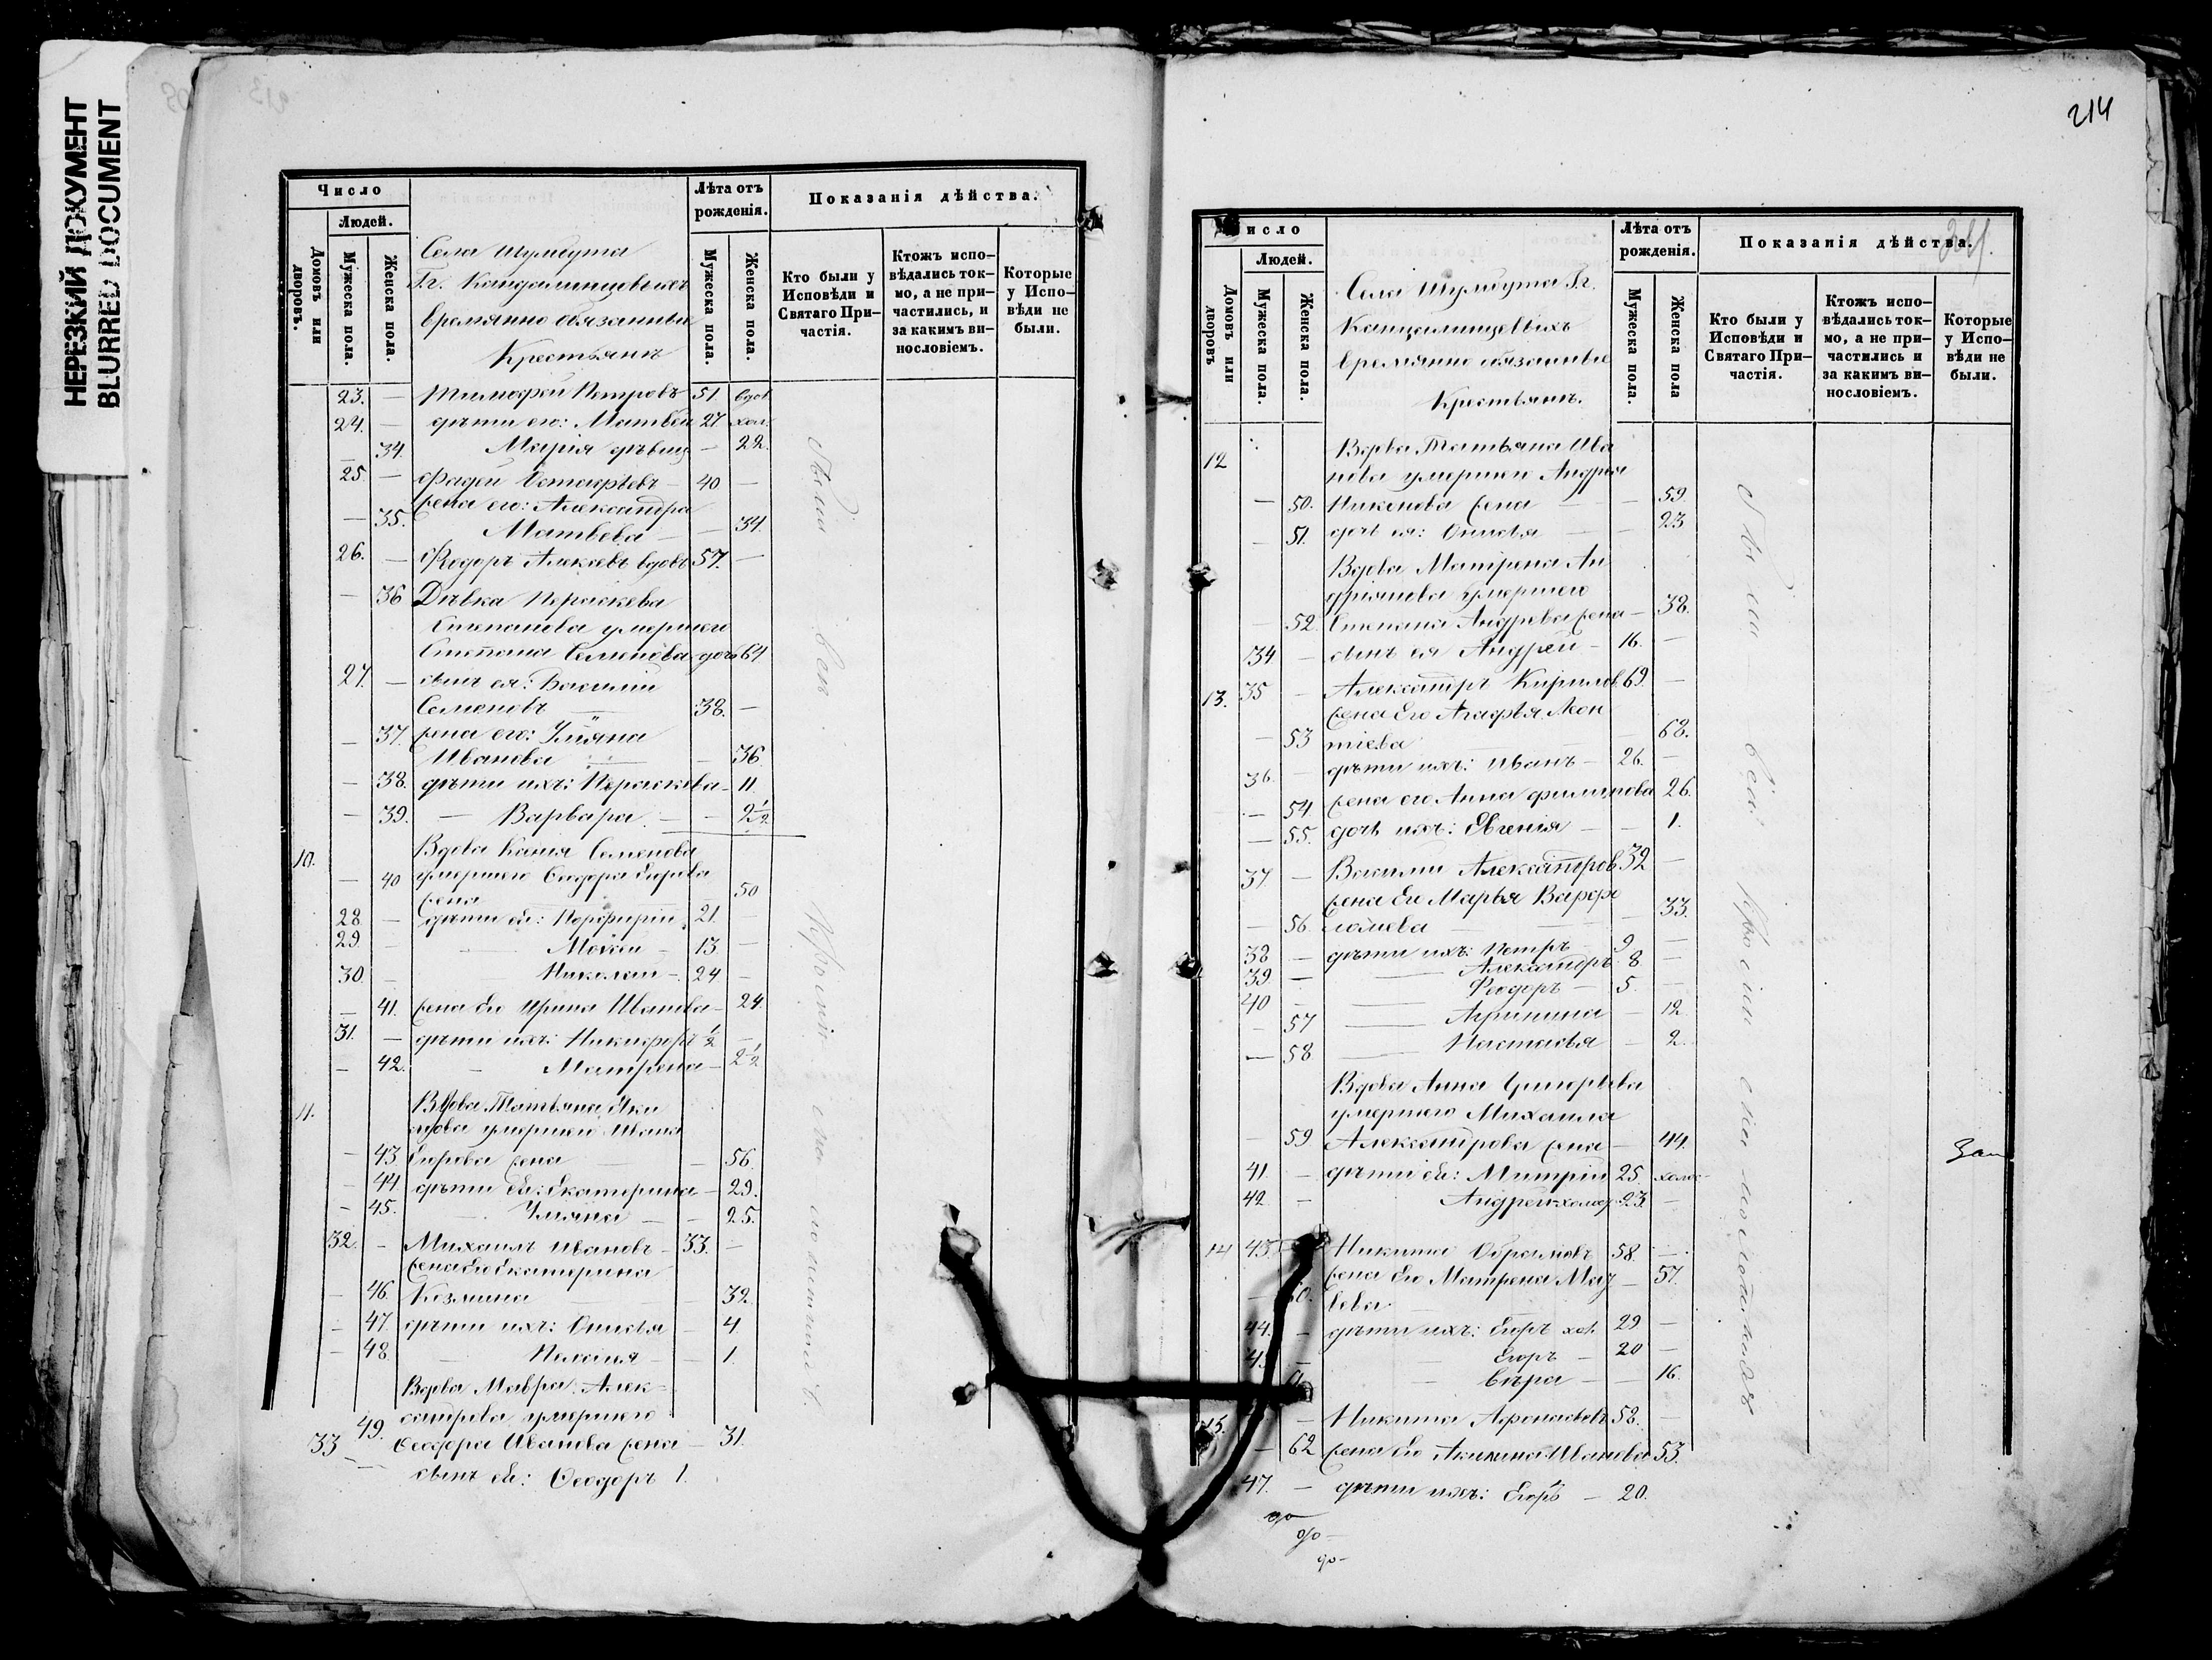 НЕРЕЗКИЙ ДОКУМЕНТ
BLURRED DOCUMENT
Число
Людей.
Домовъ или дворовъ.
Мужеска пола.
Женска пола.
Лѣта отъ рожденія.
Мужеска пола.
Женска пола.
Показанія дѣйства.
Кто были у Исповѣди и Святаго При-частія.
Ктожъ испо-вѣдались ток-мо, а не при-частились, и за какимъ ви-нословіемъ.
Которые у Испо-вѣди не были.
Села Шумбута
Гг.
временно обязанные
Крестьянъ
23. — Тимофей Петровъ 51. вдов.
24. — дѣти его: Матвей 27 хол.
— 34. Марія дѣвиц — 22.
25. — Фадей 40 —
жена его: Александра
— 35. Матвева — 34.
26. — Ѳедоръ Алексевъ вдовъ 57. —
— 36 Дѣвка Пераскева
Степанова умершего
Степана Семенова дочь 64
27. — сынъ ея: Василій
Семеновъ 38. —
— 37. жена его: Ульяна
Иванова — 36
— 38. дѣти ихъ: Пераскева — 11.
— 39. — Варвара — 2½
10. Вдова Ксенія Семенова
— 40 умершего Сидора Егорова
жена 50
28 — дѣти ей: Порфирій 21. —
29. — Моисей — 13. —
30. — Николай — 24 —
— 41. жена Его Ирина Иванова — 24
31. — дѣти ихъ: Никифоръ ½ —
— 42. Матрена — 2½
11. Вдова Татьяна Яки
мова умершего Ивана
— 43. Егорова жена — 56.
— 44 дѣти ей: Екатерина — 29.
— 45. Ульяна — 25.
32. — Михаилъ Ивановъ — 33. —
жена Его Екатерина
— 46. Козмина 32.
— 47. дѣти ихъ: Онисья — 4.
— 48. Пелагия — 1.
Вдова Мавра Алек-
сандрова умершего
49. Ѳеодора Иванова жена — 31.
33 — сынъ ей: Ѳеодоръ 1.
Были все у Исповѣди и
214
Число
Людей.
Домовъ или дворовъ
Мужеска пола.
Женска пола.
Лѣта отъ рожденія.
Мужеска пола.
Женска пола
Показанія дѣйства.
Кто были у Исповѣди и Святаго При-частія.
Ктожъ испо-вѣдались ток-мо, а не при-частились и за какимъ ви-нословіемъ.
Которые у Испо-вѣди не были.
Села Шумбута Гг.
временно обязанные
Крестьянъ.
12 Вдова Татьяна Ива
нова умершего Андрея
— 50. Никонова жена — 59.
— 51. дочь ея: Онисья — 23
Вдова Матрена Ан
дриянова умершего
— 52. Степана Андреева жена — 38.
34. — сынъ ея Андрей — 16. —
13. 35 — Александръ Кирилов. 69. —
жена Его Агафья Леон
— 53 тіева — 68.
36. — дѣти ихъ: Иванъ — 26. —
— 54 жена его Анна Филипова 26.
— 55. дочь ихъ: Евгенія — 1.
37 — Василий Александров. 32 —
жена Его Марья Варфо
— 56. ломева — 33.
38 — дѣти ихъ: Петръ — 9 —
39 — Александръ 8. —
40 — Ѳеодоръ — 5. —
— 57 Агрипина — 12.
— 58. Настасья — 2.
Вдова Анна Григорьева
умершего Михаила
— 59 Александрова жена — 44.
41. — дѣти ей: Митрій 25. холос
42 — Андрей холос. 23. —
14 43. Никита 58. —
жена Его Матрена Мат — 57.
60. веева
44. — дѣти ихъ: Егоръ хол. 29 —
45 — Егоръ — 20 —
61. Вѣра — 16.
15. — Никита Афонасьевъ 58. —
— 62 жена Его Акилина Иванова 53.
47. — дѣти ихъ: Егоръ — 20.
Были все у Исповѣди и